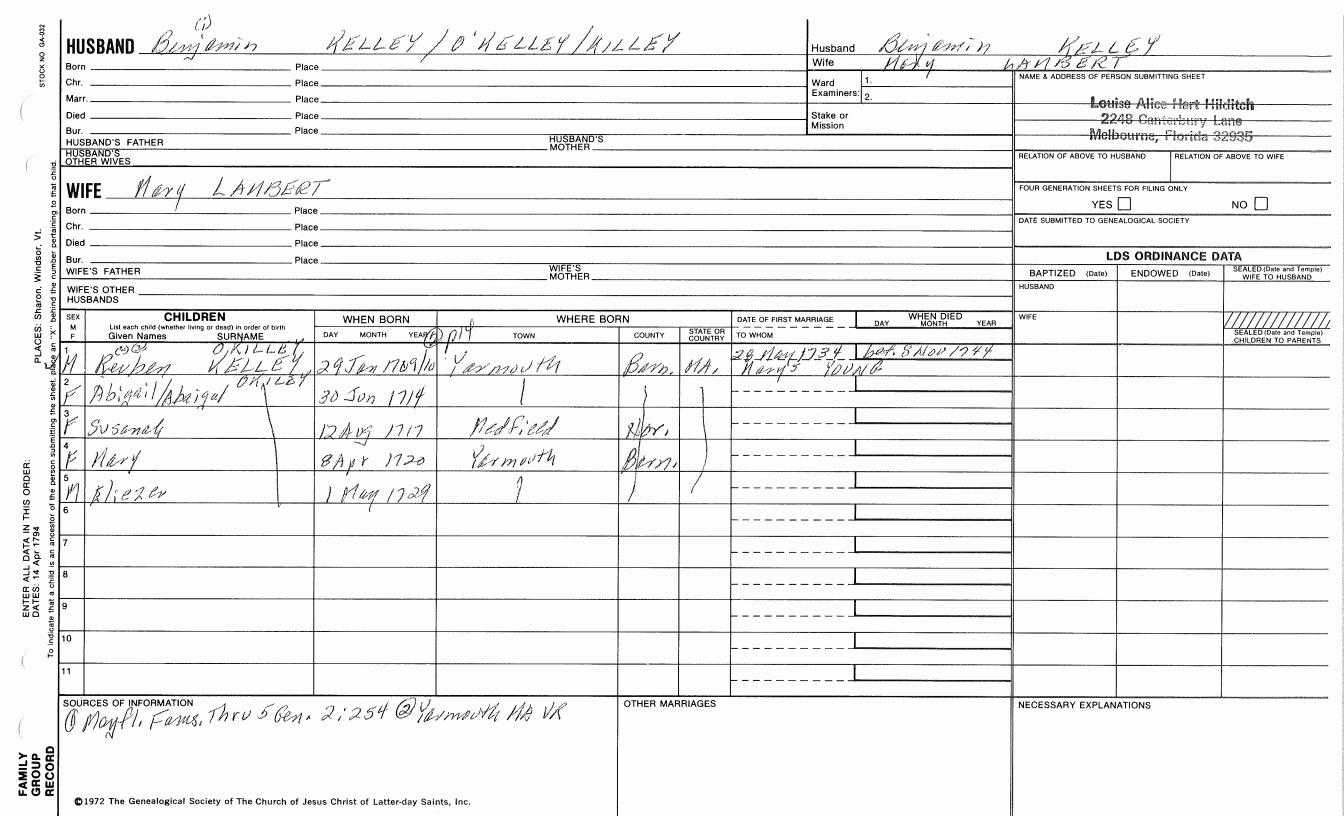 STOCK NO GA-032
(1)
HUSBAND Benjamin KELLEY/O'KELLEY/KILLEY
Born Place
Chr. Place
Marr. Place
Died Place
Bur. Place
HUSBAND'S FATHER HUSBAND'S MOTHER
HUSBAND'S OTHER WIVES
Husband Benjamin KELLEY
Wife Mary LAMBERT
Ward Examiners: 1. 2.
Stake or Mission
NAME & ADDRESS OF PERSON SUBMITTING SHEET
Louise Alice Hart Hilditch
2248 Canterbury Lane
Melbourne, Florida 32935
RELATION OF ABOVE TO HUSBAND RELATION OF ABOVE TO WIFE
FOUR GENERATION SHEETS FOR FILING ONLY
YES NO
DATE SUBMITTED TO GENEALOGICAL SOCIETY
WIFE Mary LAMBERT
Born Place
Chr. Place
Died Place
Bur. Place
WIFE'S FATHER WIFE'S MOTHER
WIFE'S OTHER HUSBANDS
LDS ORDINANCE DATA
BAPTIZED (Date) ENDOWED (Date) SEALED (Date and Temple) WIFE TO HUSBAND
HUSBAND
WIFE
SEALED (Date and Temple) CHILDREN TO PARENTS
SEX M F
CHILDREN
List each child (whether living or dead) in order of birth
Given Names SURNAME
WHEN BORN
DAY MONTH YEAR
WHERE BORN
TOWN COUNTY STATE OR COUNTRY
DATE OF FIRST MARRIAGE
TO WHOM
WHEN DIED
DAY MONTH YEAR
p14
O,KILLEY
1 M Reuben KELLEY 29 Jan 1709/10 Yarmouth Barn. MA. 28 May 1734 bef. 8 Nov 1744
Mary YOUNG
OKILEY
2 F Abigail/Abaigal 30 Jun 1714
3 F Susanah 12 Aug 1717 Medfield Nor.
4 F Mary 8 Apr 1720 Yarmouth Barn.
5 M Eliezer 1 May 1729
6
7
8
9
10
11
SOURCES OF INFORMATION
① Mayfl. Fams. Thru 5 Gen. 2:254 ② Yarmouth MA VR
OTHER MARRIAGES
NECESSARY EXPLANATIONS
©1972 The Genealogical Society of The Church of Jesus Christ of Latter-day Saints, Inc.
PLACES: Sharon, Windsor, Vt.
To indicate that a child is an ancestor of the person submitting the sheet, place an "X" behind the number pertaining to that child.
ENTER ALL DATA IN THIS ORDER:
DATES: 14 Apr 1794
FAMILY
GROUP
RECORD